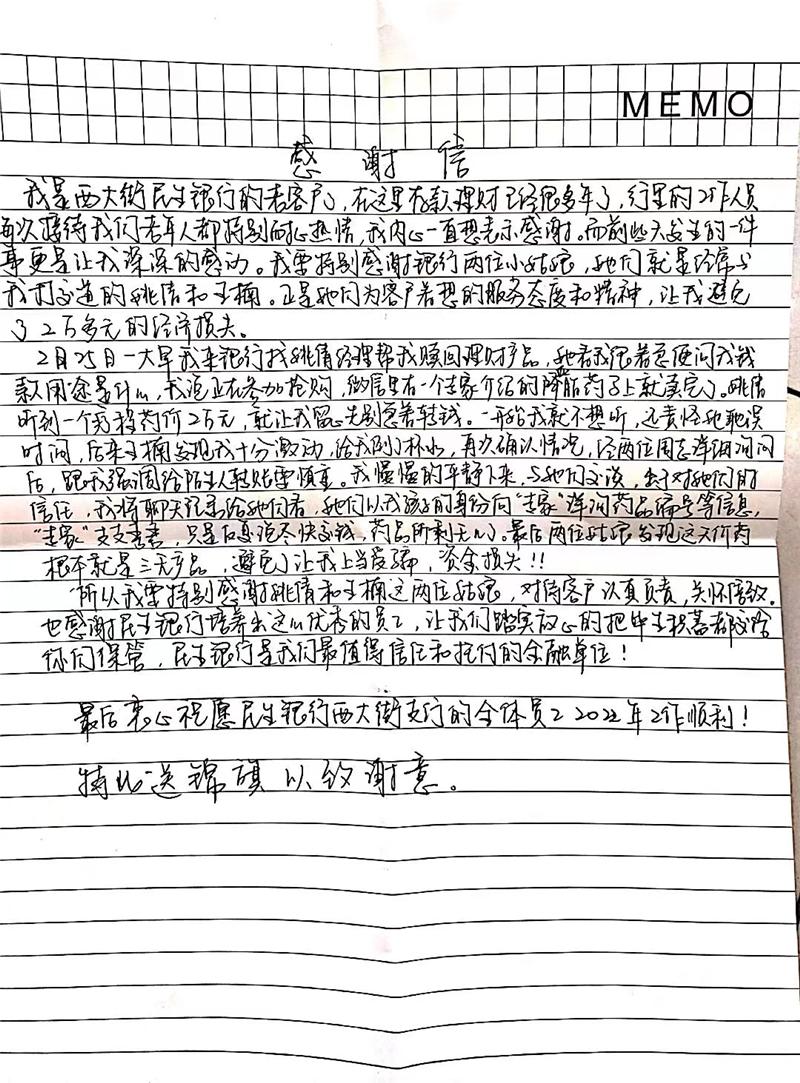 MEMO
感谢信
我是西大街民生银行的老客户，在这里存款理财已经很多年了，行里的工作人员
每次接待我们老年人都特别耐心热情，我内心一直想表示感谢。而前些天发生的一件
事更是让我深深的感动。我要特别感谢银行两位小姑娘，她们就是经常与
我打交道的姚倩和王楠。正是她们为客户着想的服务态度和精神，让我避免
了2万多元的经济损失。
2月25日一大早我来银行找姚倩经理帮我赎回理财产品，她看我很着急便问我钱
款用途是什么，我说正在参加抢购，微信里有一个专家介绍的降脂药马上就卖完了。姚倩
听到一个疗程药价2万元，就让我留心先别急着转钱。一开始我就不想听，还责怪她耽误
时间，后来王楠发现我十分激动，给我倒了杯水，再次确认情况，经两位同志详细询问
后，跟我强调给陌生人转账要慎重。我慢慢的平静下来，与她们交谈，出于对她们的
信任，我将聊天记录给她们看，她们以我孩子的身份向“专家”详询药品编号等信息，
“专家”支支吾吾，只是反复说尽快交钱，药品所剩无几了。最后两位姑娘发现这天价药
根本就是三无产品，避免了让我上当受骗，资金损失！！
所以我要特别感谢姚倩和王楠这两位姑娘，对待客户认真负责，关怀倍致。
也感谢民生银行培养出这么优秀的员工，让我们踏实放心的把毕生积蓄都交给
你们保管，民生银行是我们最值得信任和托付的金融单位！
最后衷心祝愿民生银行西大街支行的全体员工2022年工作顺利！
特此送锦旗以致谢意。